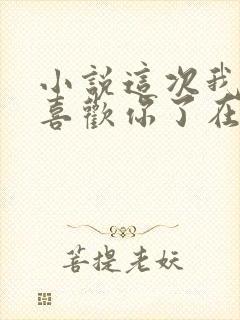 小說這次我
喜歡你了在
菩提老妖